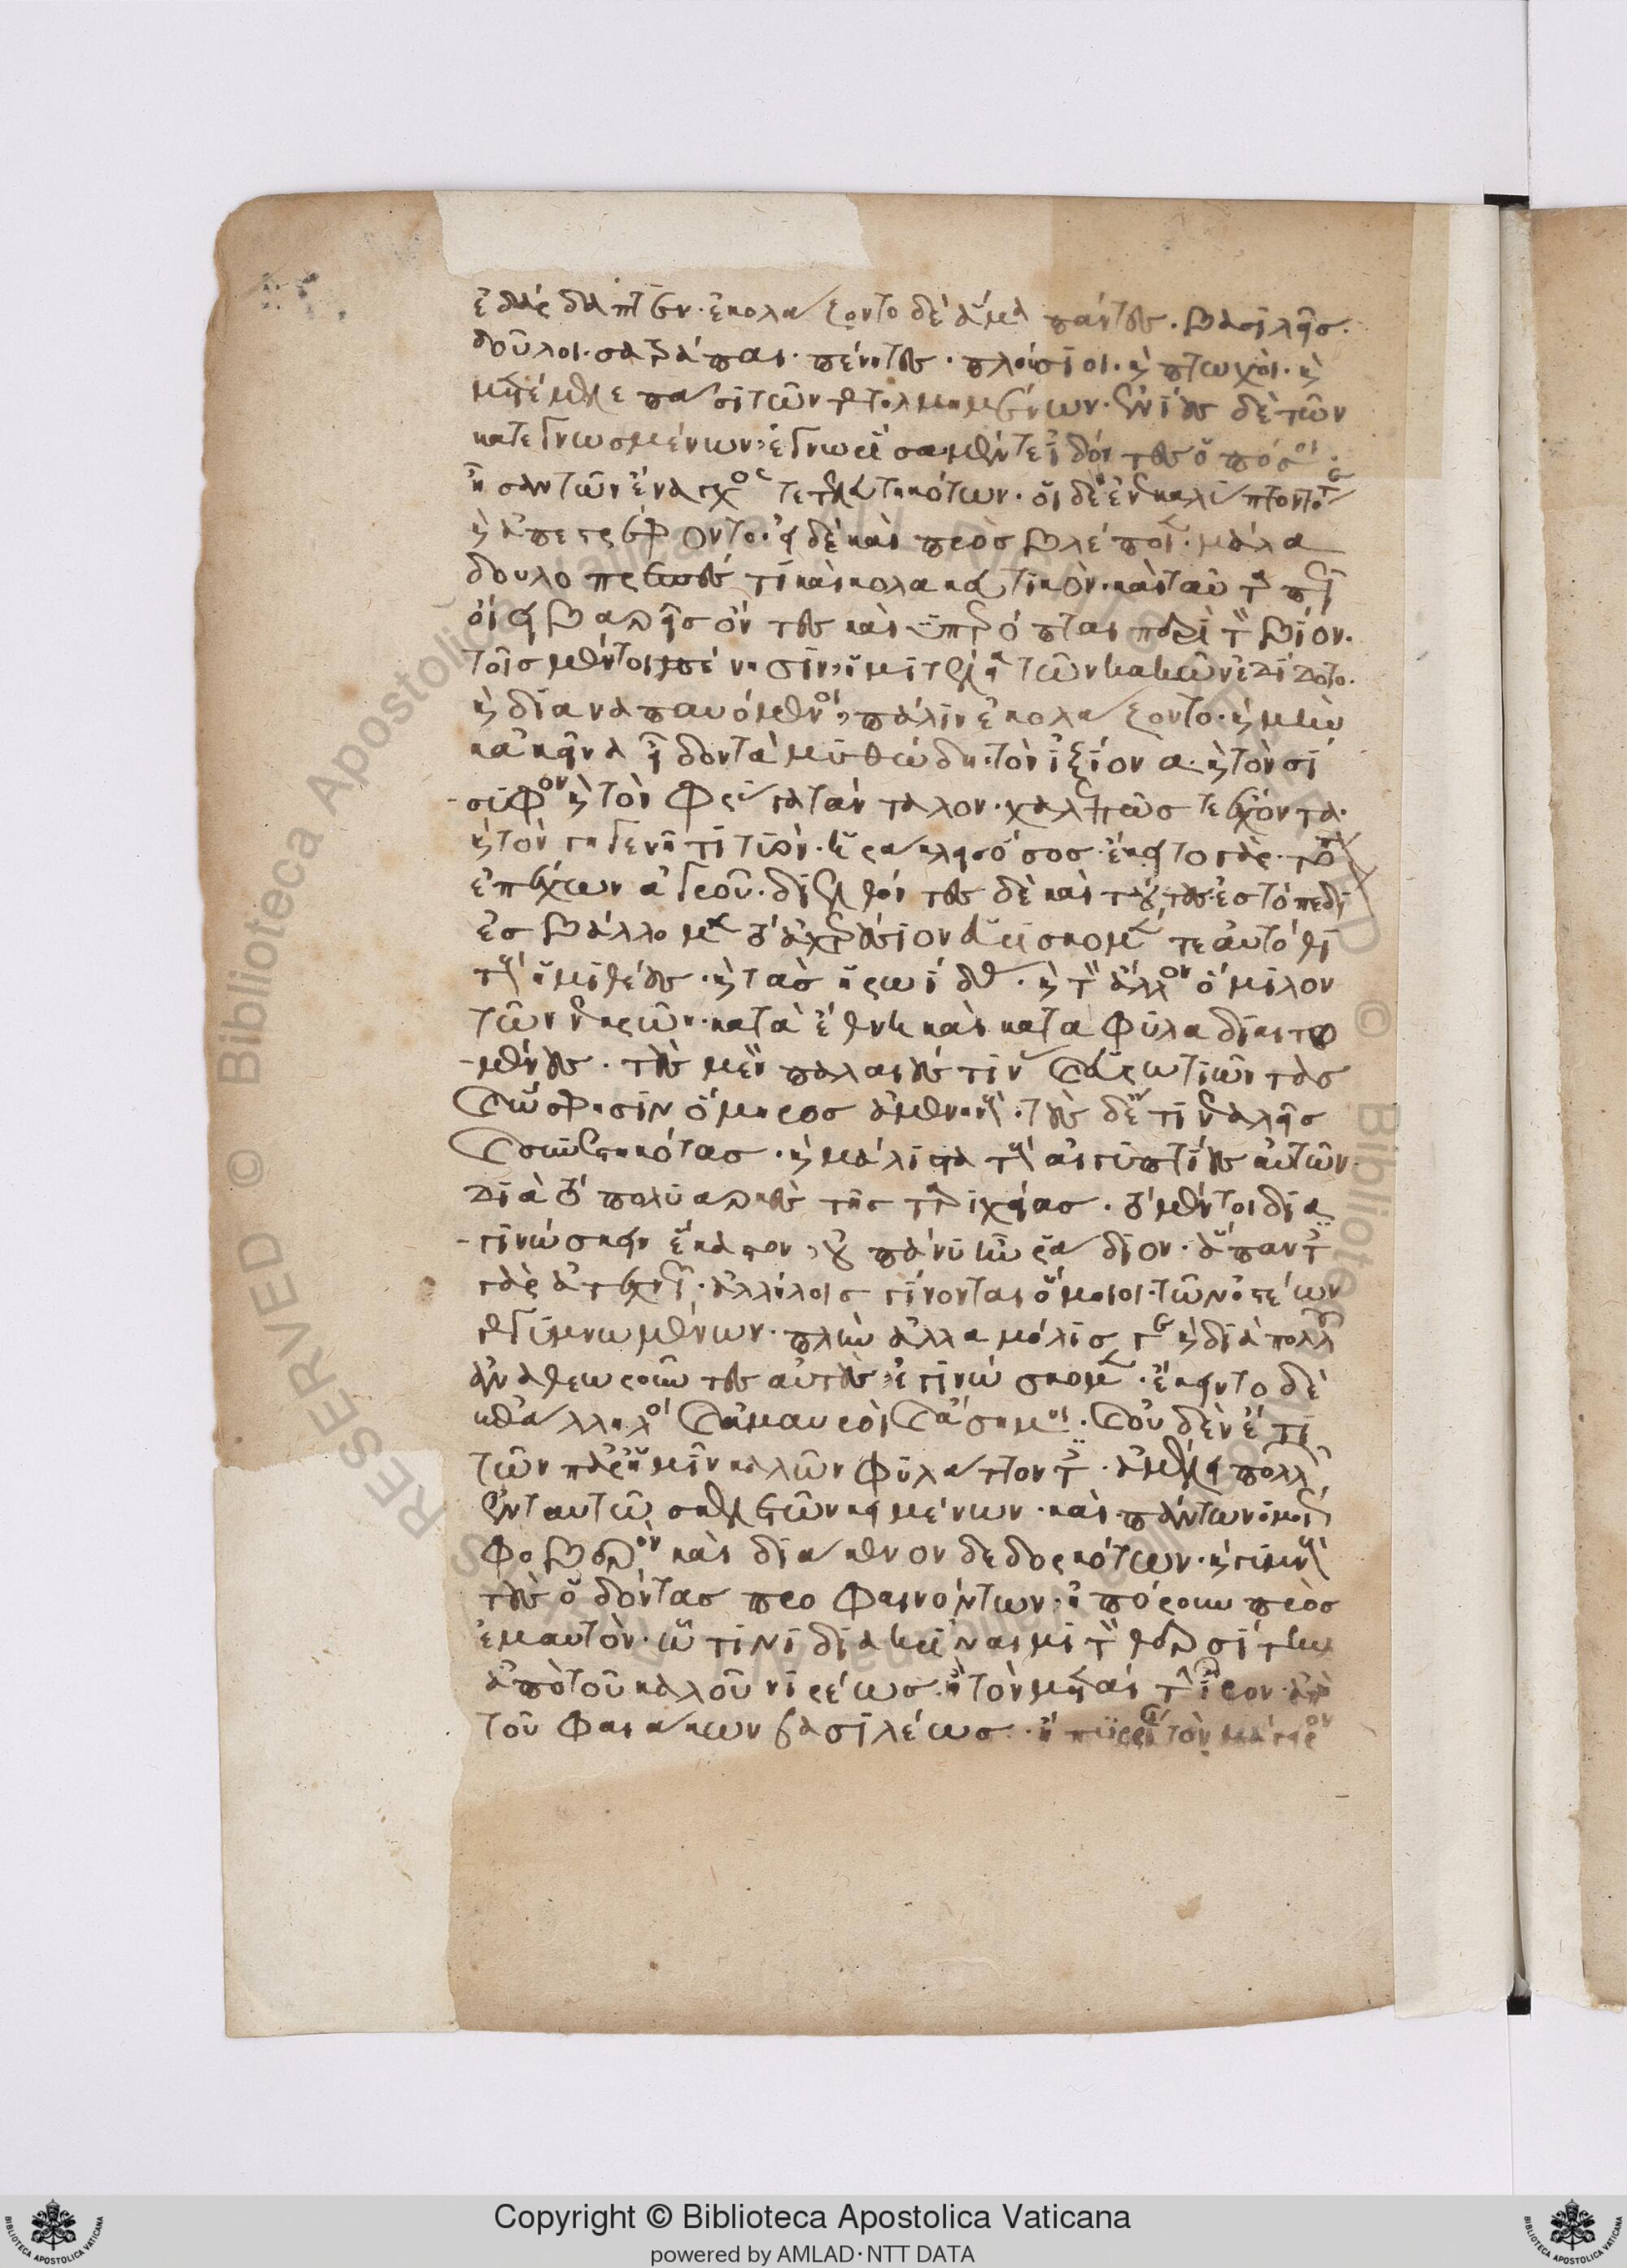 ἐδάρδαπτεν· ἐκολάζοντο δὲ ἅμα πάντες· βασιλεῖς·
δοῦλοι· σατράπαι· πένητες· πλούσιοι· καὶ πτωχοί· καὶ
μετέμελε πᾶσι τῶν τετολμημένων· ἐνίους δὲ τῶν
κατεγνωσμένων ἐγνωρίσαμεν τε ἰδόντες ὁπόσοι
ἦσαν τῶν ἔναγχος τετελευτηκότων· οἱ δὲ ἐνεκαλύπτοντό τε
καὶ ἀπεστρέφοντο· εἰ δὲ καὶ προσβλέποιεν· μάλα
δουλοπρεπές τι καὶ κολακευτικόν· καὶ ταῦτα πῶς
οἰει βαρεῖς ὄντες καὶ ὑπερόπται παρὰ τὸν βίον·
τοῖς μέντοι πένησιν ἡμιτέλεια τῶν κακῶν ἐδίδοτο·
καὶ διαναπαυόμενοι πάλιν ἐκολάζοντο· καὶ μὴν
κἀκεῖνα εἶδον τὰ μυθώδη· τὸν ἰξίονα· καὶ τὸν σί
-συφον καὶ τὸν φρύγα τάνταλον· χαλεπῶς τε ἔχοντα·
καὶ τὸν γηγενῆ τιτυὸν· ἡράκλεις ὅσος· ἔκειτο γὰρ τόπον
ἐπέχων ἀγροῦ· διελθόντες δὲ καὶ τούτους ἐς τὸ πεδίον
ἐσβάλλομεν τὸ ἀχερούσιον εὑρίσκομέν τε αὐτόθι
τοὺς ἡμιθέους· καὶ τὰς ἡρωίδας· καὶ τὸν ἄλλον ὅμιλον
τῶν νεκρῶν· κατὰ ἔθνη καὶ κατὰ φῦλα διαιτω
-μένους· τοὺς μὲν παλαιούς τινας καὶ εὐρωτιῶντας
καὶ ὥς φησιν ὅμηρος ἀμενηνούς· τοὺς δὲ ἔτι νεαλεῖς
καὶ συνεστηκότας· καὶ μάλιστα τοὺς αἰγυπτίους αὐτῶν
διὰ τὸ πολυαρκὲς τῆς ταριχείας· τὸ μέντοι δια
-γινώσκειν ἕκαστον, οὐ πάνυ ἦν ῥᾴδιον· ἅπαντες
γὰρ ἀτεχνῶς ἀλλήλοις γίνονται ὅμοιοι· τῶν ὀστέων
γεγυμνωμένων· πλὴν ἀλλὰ μόλις γε καὶ διὰ πολλοῦ
ἀναθεωροῦντες αὐτοὺς ἐγινώσκομεν· ἔκειντο δὲ
ἐπ' ἀλλήλοις καὶ ἀμαυροὶ καὶ ἄσημοι· καὶ οὐδὲν ἔτι
τῶν παρ' ἡμῖν καλῶν φυλάττοντες· ἀμέλει πολλῶν
ἐν ταυτῷ σκελετῶν κειμένων· καὶ πάντων ὁμοίως
φοβερὸν καὶ διάκενον δεδορκότων· καὶ γυμνοὺς
τοὺς ὀδόντας προφαινόντων· ἠπόρουν πρὸς
ἐμαυτὸν· ᾧ τινι διακρίναιμι τὸν θερσίτην
ἀπὸ τοῦ καλοῦ νιρέως· ἢ τὸν μεταίτην ἶρον ἀπὸ
τοῦ φαιάκων βασιλέως· ἢ πυρρίαν τὸν μάγειρον